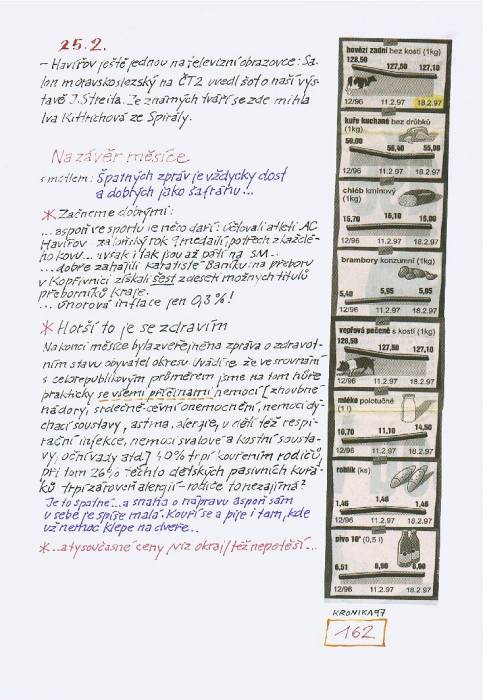 25.2.
- Havířov ještě jednou na televizní obrazovce: Sa-
lon moravskoslezský na ČT2 uvedl šot o naší výs-
tavě J. Streita. Ze známých tváří se zde mihla
Iva Kittrichová ze Spirály.
Na závěr měsíce
s mottem: Špatných zpráv je vždycky dost
a dobrých jako šafránu...
* Začneme dobrými:
... aspoň ve sportu je něco daří: Účtovali atleti AC
Havířov za loňský rok 9 medailí, po třech z každé-
ho kovu... avšak i tak jsou až pátí na SM...
... dobře zahájili karatisté Baníku: na přeboru
v Kopřivnici získali šest z deseti možných titulů
přeborníků kraje...
... únorová inflace jen 0,3 %!
* Horší to je se zdravím
Na konci měsíce byla zveřejněna zpráva o zdravot-
ním stavu obyvatel okresu. Uvádí se, že ve srovnání
s celorepublikovým průměrem jsme na tom hůře
prakticky se všemi příčinami nemocí [zhoubné
nádory, srdečně-cévní onemocnění, nemoci dý-
chací soustavy, astma, alergie, u dětí též respi-
rační infekce, nemoci svalové a kostní sousta-
vy, oční vady atd.] 40% trpí kouřením rodičů,
při tom 26% těchto dětských pasivních kuřá-
ků trpí zároveň alergií - rodiče to nezajímá?
Je to špatné...a snaha o nápravu aspoň sám
v sobě je spíše malá. Kouří se a pije i tam, kde
už nemoc klepe na dveře...
*...a ty současné ceny /viz okraj/ též nepotěší...
hovězí zadní bez kosti (1kg)
128,50 127,50 127,10
12/96 11.2.97 18.2.97
kuře kuchané bez drůbků
(1kg)
56,40 55,00
12/96 11.2.97 18.2.97
chléb kmínový
(1kg)
15,70 16,10
12/96 11.2.97 18.2.97
brambory konzumní (1kg)
5,40 5,95
12/96 11.2.97 18.2.97
vepřová pečeně s kostí (1kg)
128,50 127,50 127,10
12/96 11.2.97 18.2.97
mléko polotučné
(1 l)
10,70 11,10 14,50
12/96 11.2.97 18.2.97
rohlík (ks)
1,46 1,48 1,48
12/96 11.2.97 18.2.97
pivo 10° (0,5 l)
6,51 6,60
12/96 11.2.97 18.2.97
KRONIKA 97
162